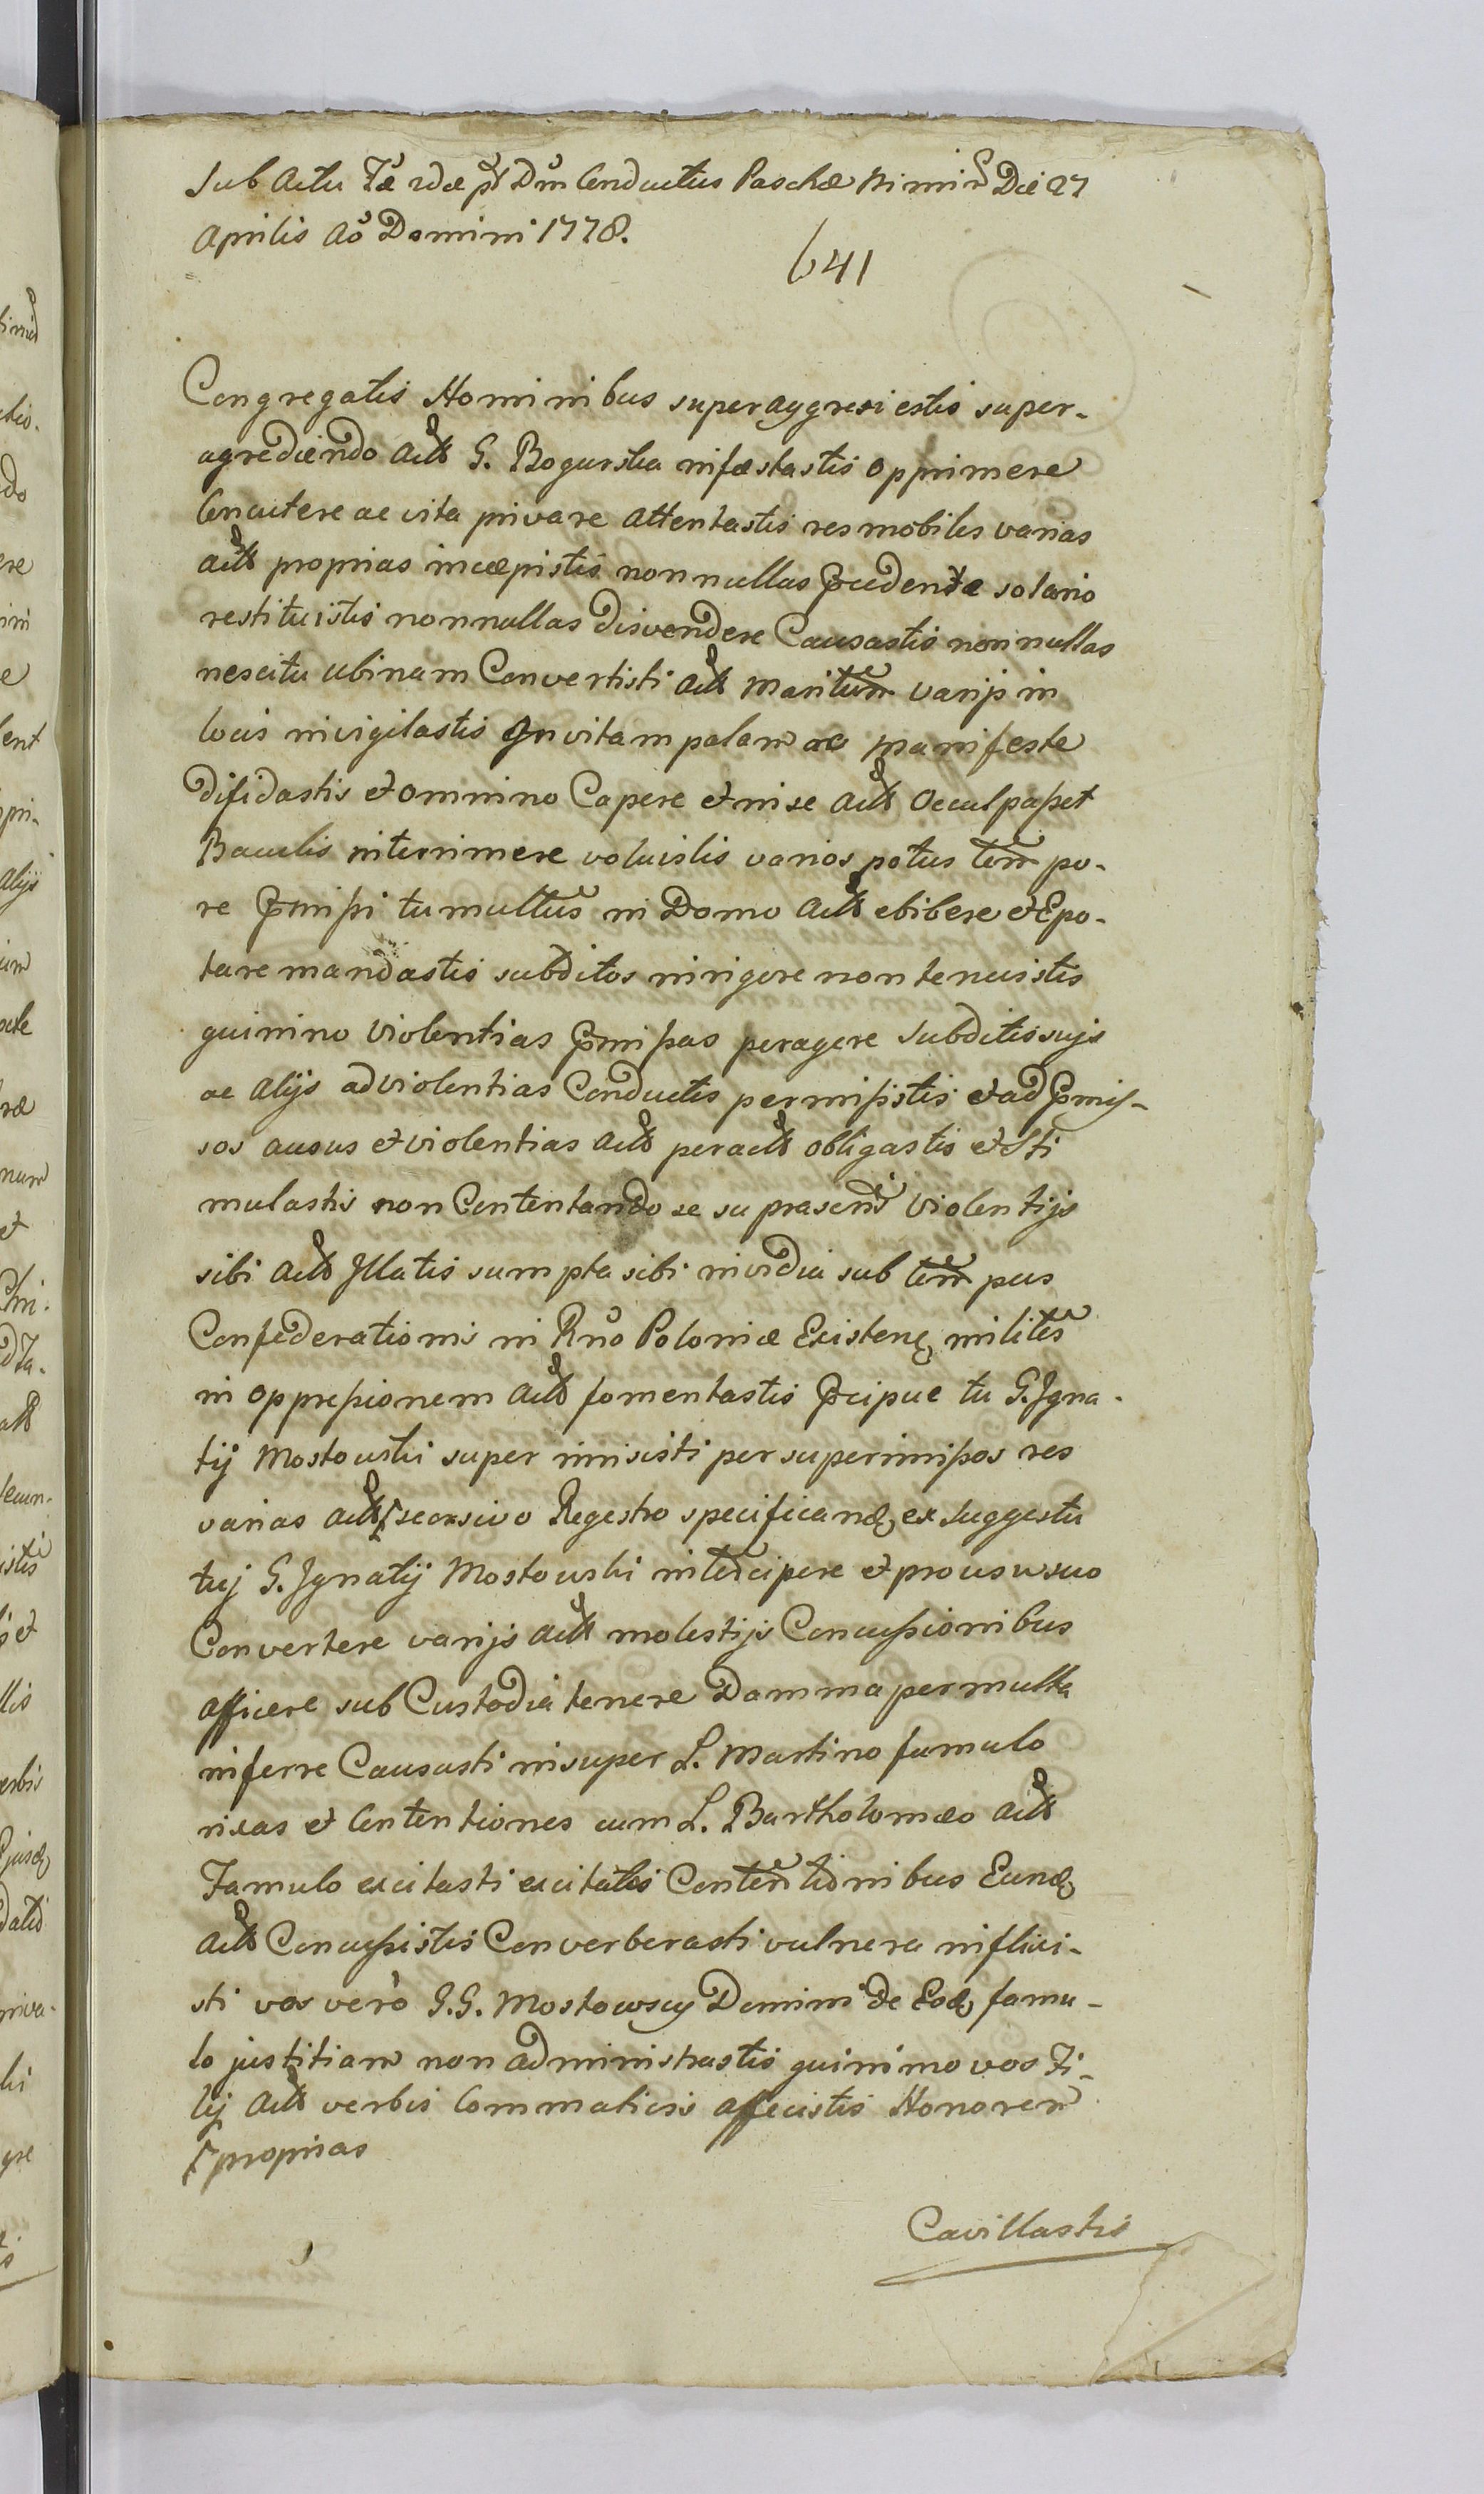 Sub Actu Fæ 2dæ pt Dm Conductus Paschæ nimir Die 27
Aprilis Ao Domini 1778.
641
Congregatis Hominibus superaggressi estis super-
agrediendo Actt G. Bogurska infæstastis opprimere
Concutere ac vita privare attentastis res mobiles varias
actt proprias incæpistis nonnullas præcedente solario
restituistis nonnullas disvendere Causastis nonnullas
nescitu ubinam Convertisti actt maritum varijs in
locis invigilastis In vitam palam ac manifeste
difidastis et omnino Capere et ni se actt occulpasset
Baculis interrimere voluistis varios potus tem po-
re præmissi tumultus in Domo actt ebibere et Epo-
tare mandastis subditos in rigore non tenuistis
quinino violentias præmissas peragere subditis sujs
ac alijs ad violentias Conductis permisistis et ad præmis-
sos ausus et violentias actt peractt obligastis et Sti
mulastis non Contentando se su præscris violentijs
sibi actt Illatis sumpta sibi invidia sub tem pus
Confederationis in Rno Poloniæ Existenq milites
in oppressionem actt fomentastis præcipue tu G. Igna-
tij Mostowski super imisisti per superimissos res
varias actt seorsivo Regestro specificandq ex suggestu
tuj G. Ignatij Mostowski intercipere et pro usu suo
Convertere varijs actt molestijs Concussionibus
afficere sub Custodia tenere Damma permulta
inferre Causasti insuper L. Martino famulo
rixas et Contentiones cum L. Bartholomæo actt
Famulo excitasti excitatis Contentionibus Eundq
actt Concussistis Converberasti vulnera inflixi-
sti vos vero G.G. Mostowscy Domini de Eodq famu-
lo justitiam non administrastis quinimo vos Fi-
lij actt verbis Commaticis affecistis Honorem
proprias
Cavillastis